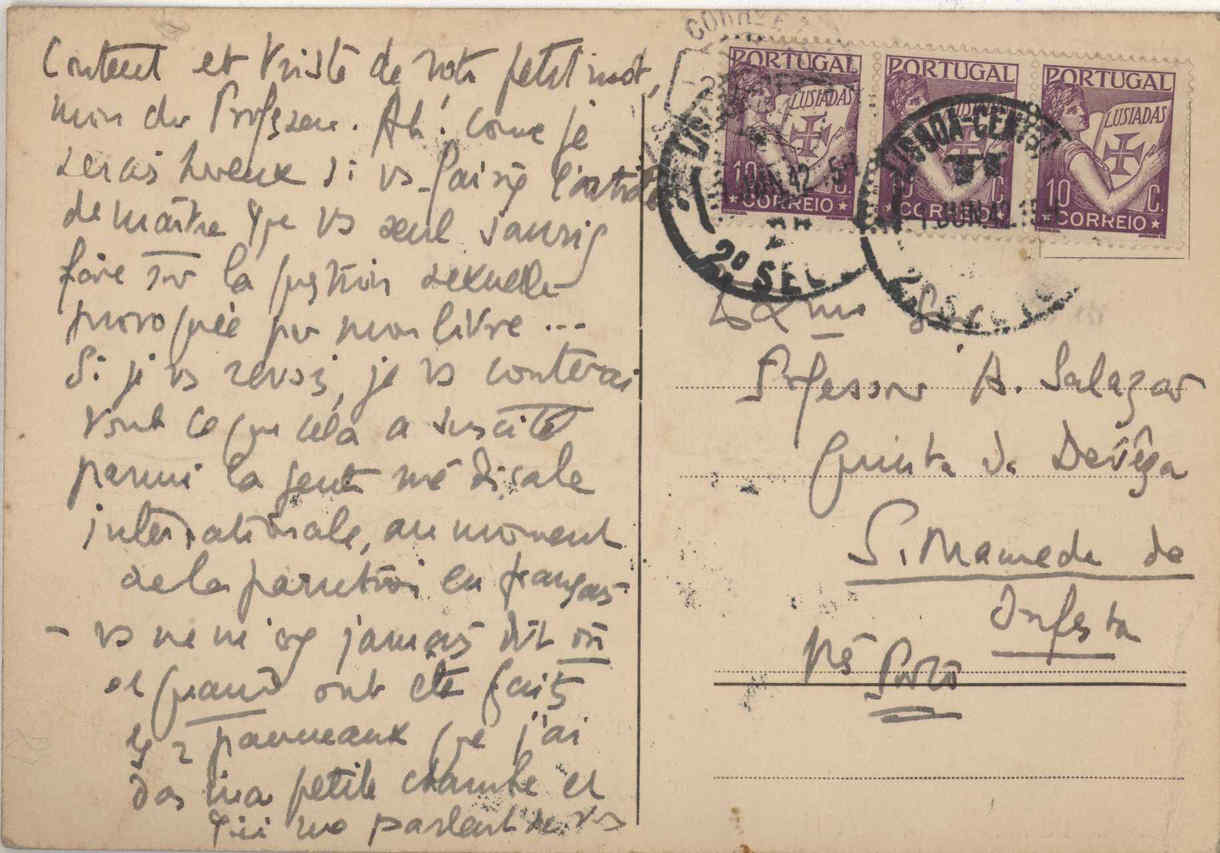 Content et triste de votre petit mot,
mon cher Professeur. Ah! comme je
serais heureux si vs faisiez l'article
de maître que vs seul sauriez
faire sur la question sexuelle
provoquée par mon livre ...
Si je vs revois, je vs conterai
tout ce que cela a suscité
parmi la gente médicale
internationale, au moment
de la parution en français
– vs ne m'avez jamais dit où
et quand ont été faits
les 2 panneaux que j'ai
dans ma petite chambre et
qui me parlent de vs
CORREIO
PORTUGAL
LUSIADAS
10 C.
*CORREIO*
PORTUGAL
LUSIADAS
10 C.
*CORREIO*
PORTUGAL
LUSIADAS
10 C.
*CORREIO*
LISBOA
JUN.42
2º SEC
LISBOA-CENTRAL
1 JUN.42.15
2º SEC
Exmo Sr
Professor A. Salazar
Quinta da Devêsa
S. Mamede de
Infesta
Porto